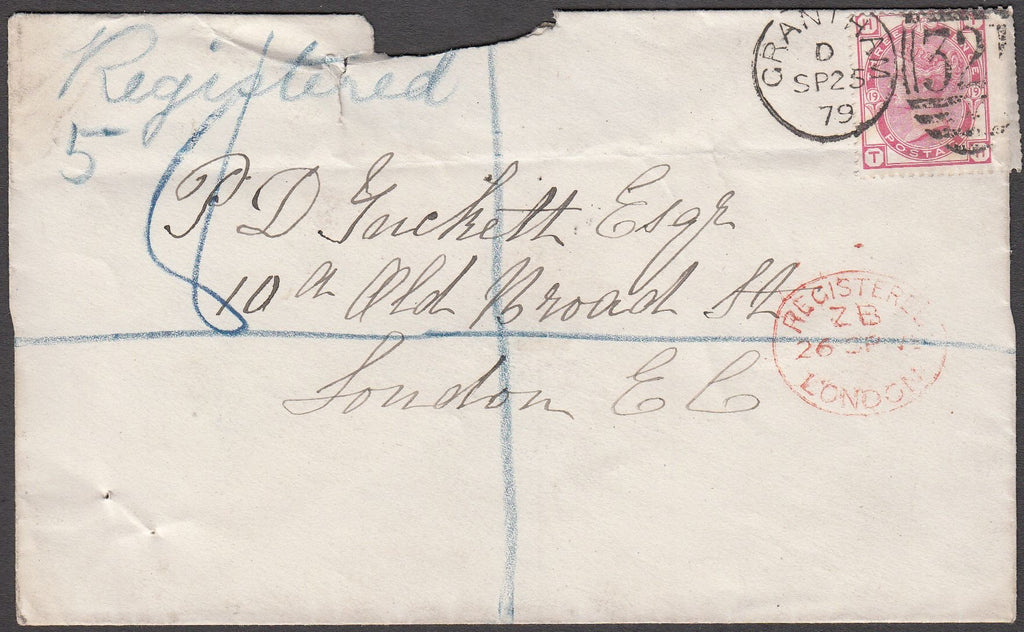 Registered
5
P D Tuckett Esqr
10a Old Broad St
London E C
GRANTHAM
D
SP25
79
32
H
19 19
POSTA
T
REGISTERED
ZB
26 SP
LONDON